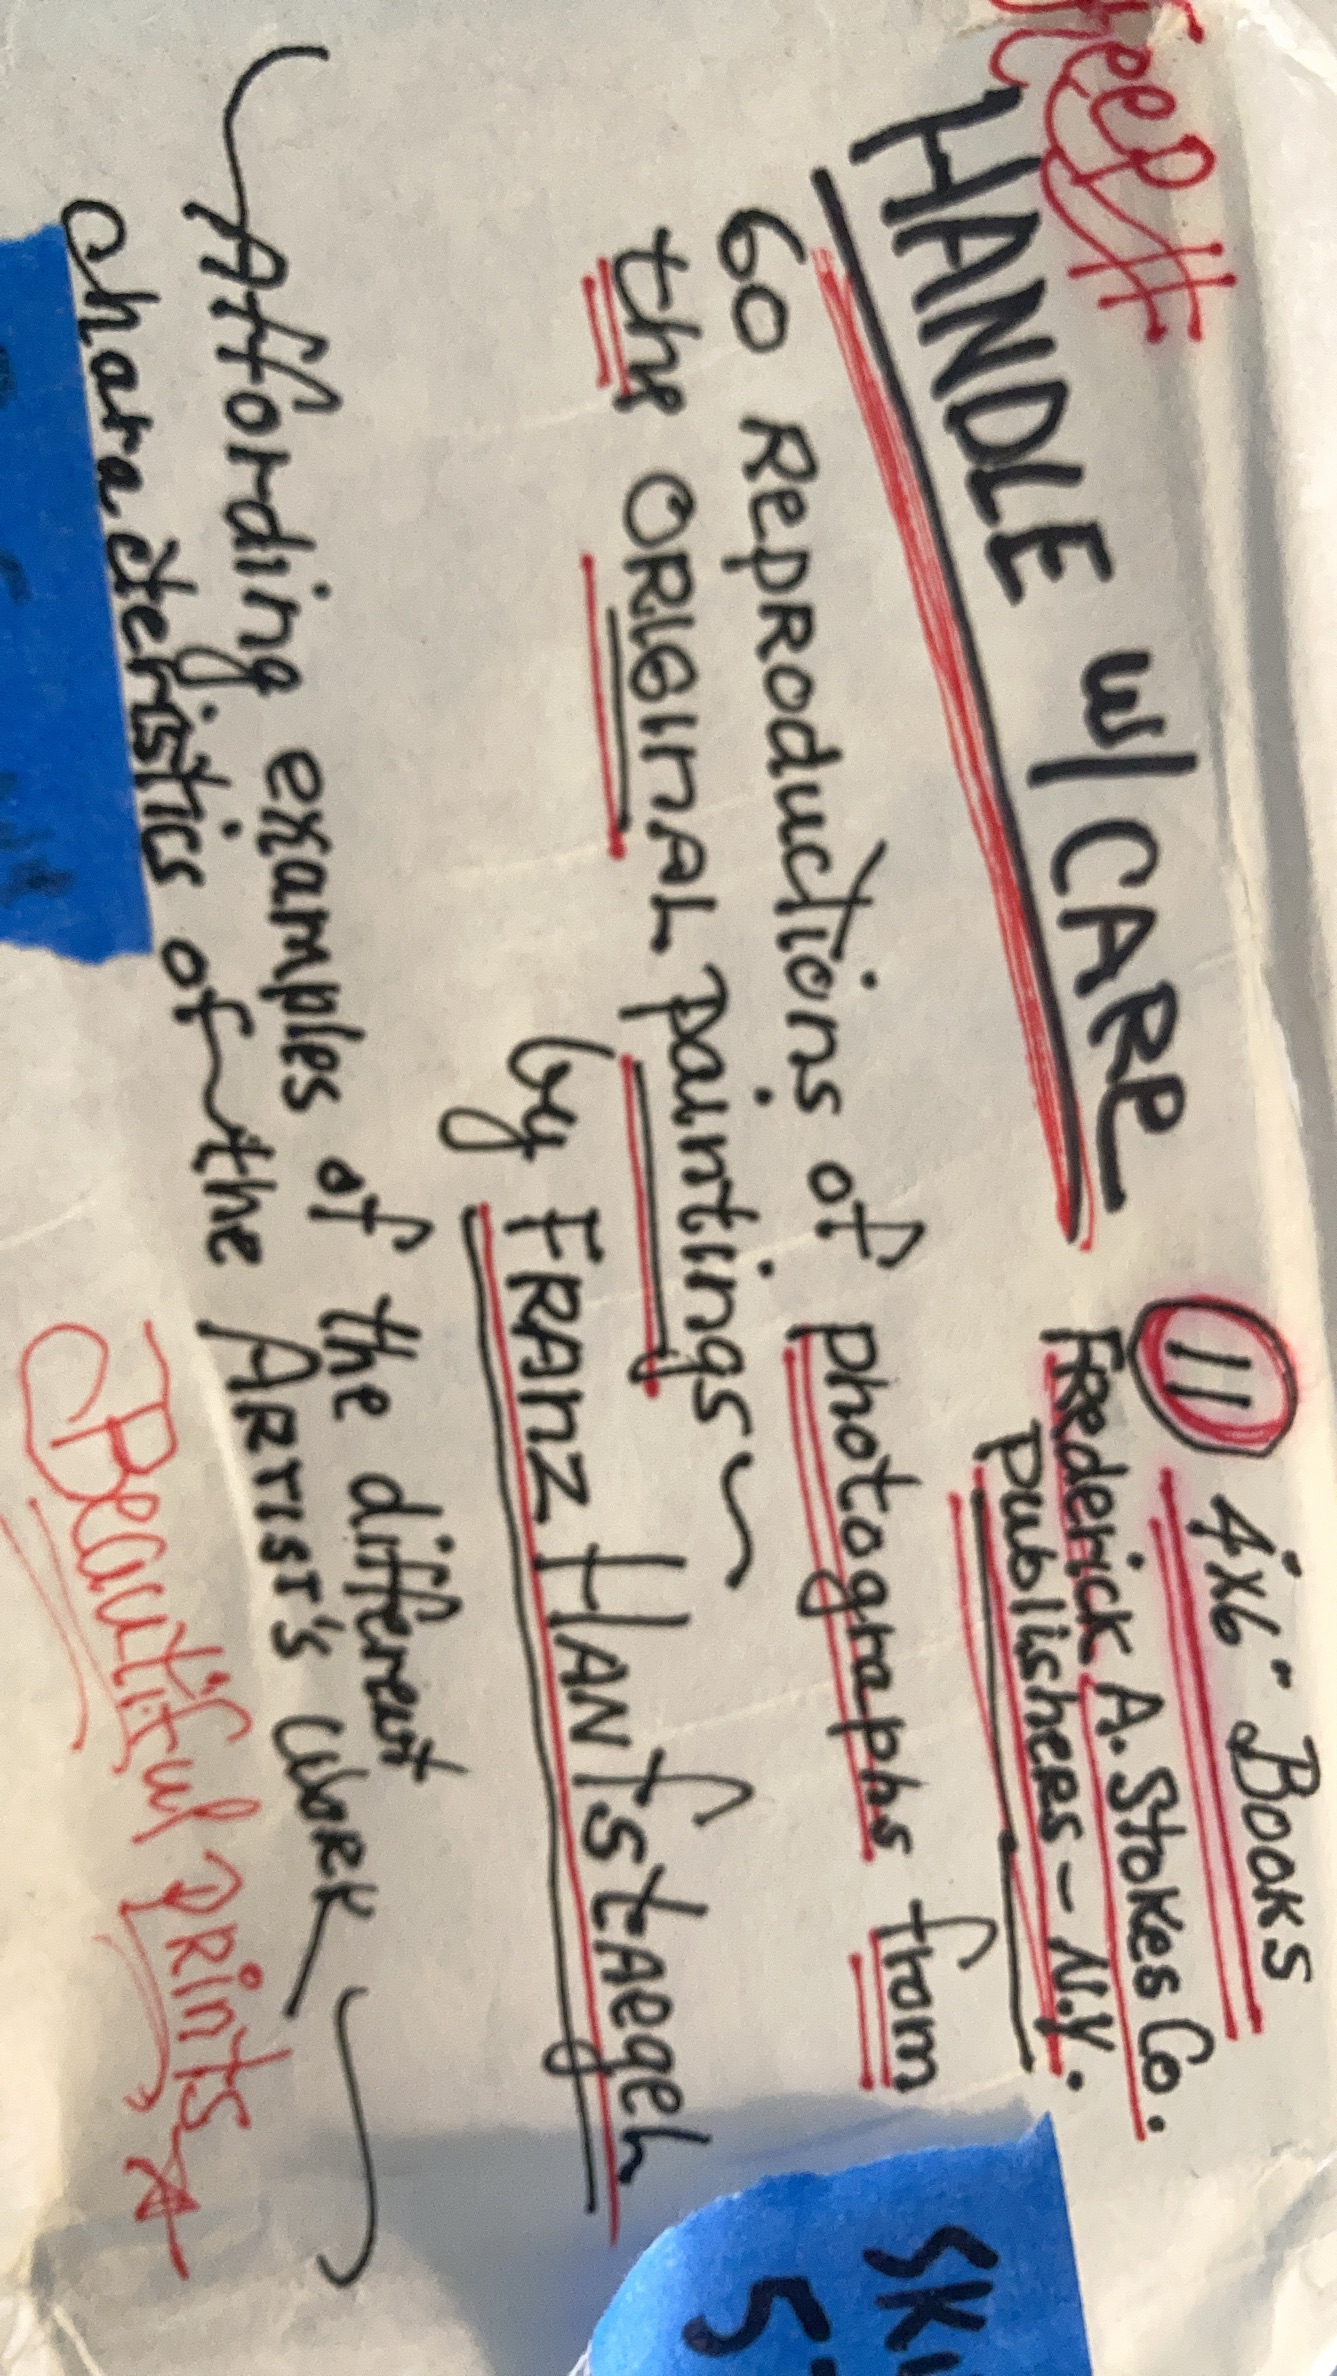 HANDLE w/ CARE
11 4"x6" Books
Frederick A. Stokes Co.
Publishers - N.Y.
60 Reproductions of photographs from
the ORIGINAL paintings ~
by FRANZ HANfstaegel
~ Affording examples of the different
characteristics of the ARTIST'S WORK ~
Beautiful prints
SK
5